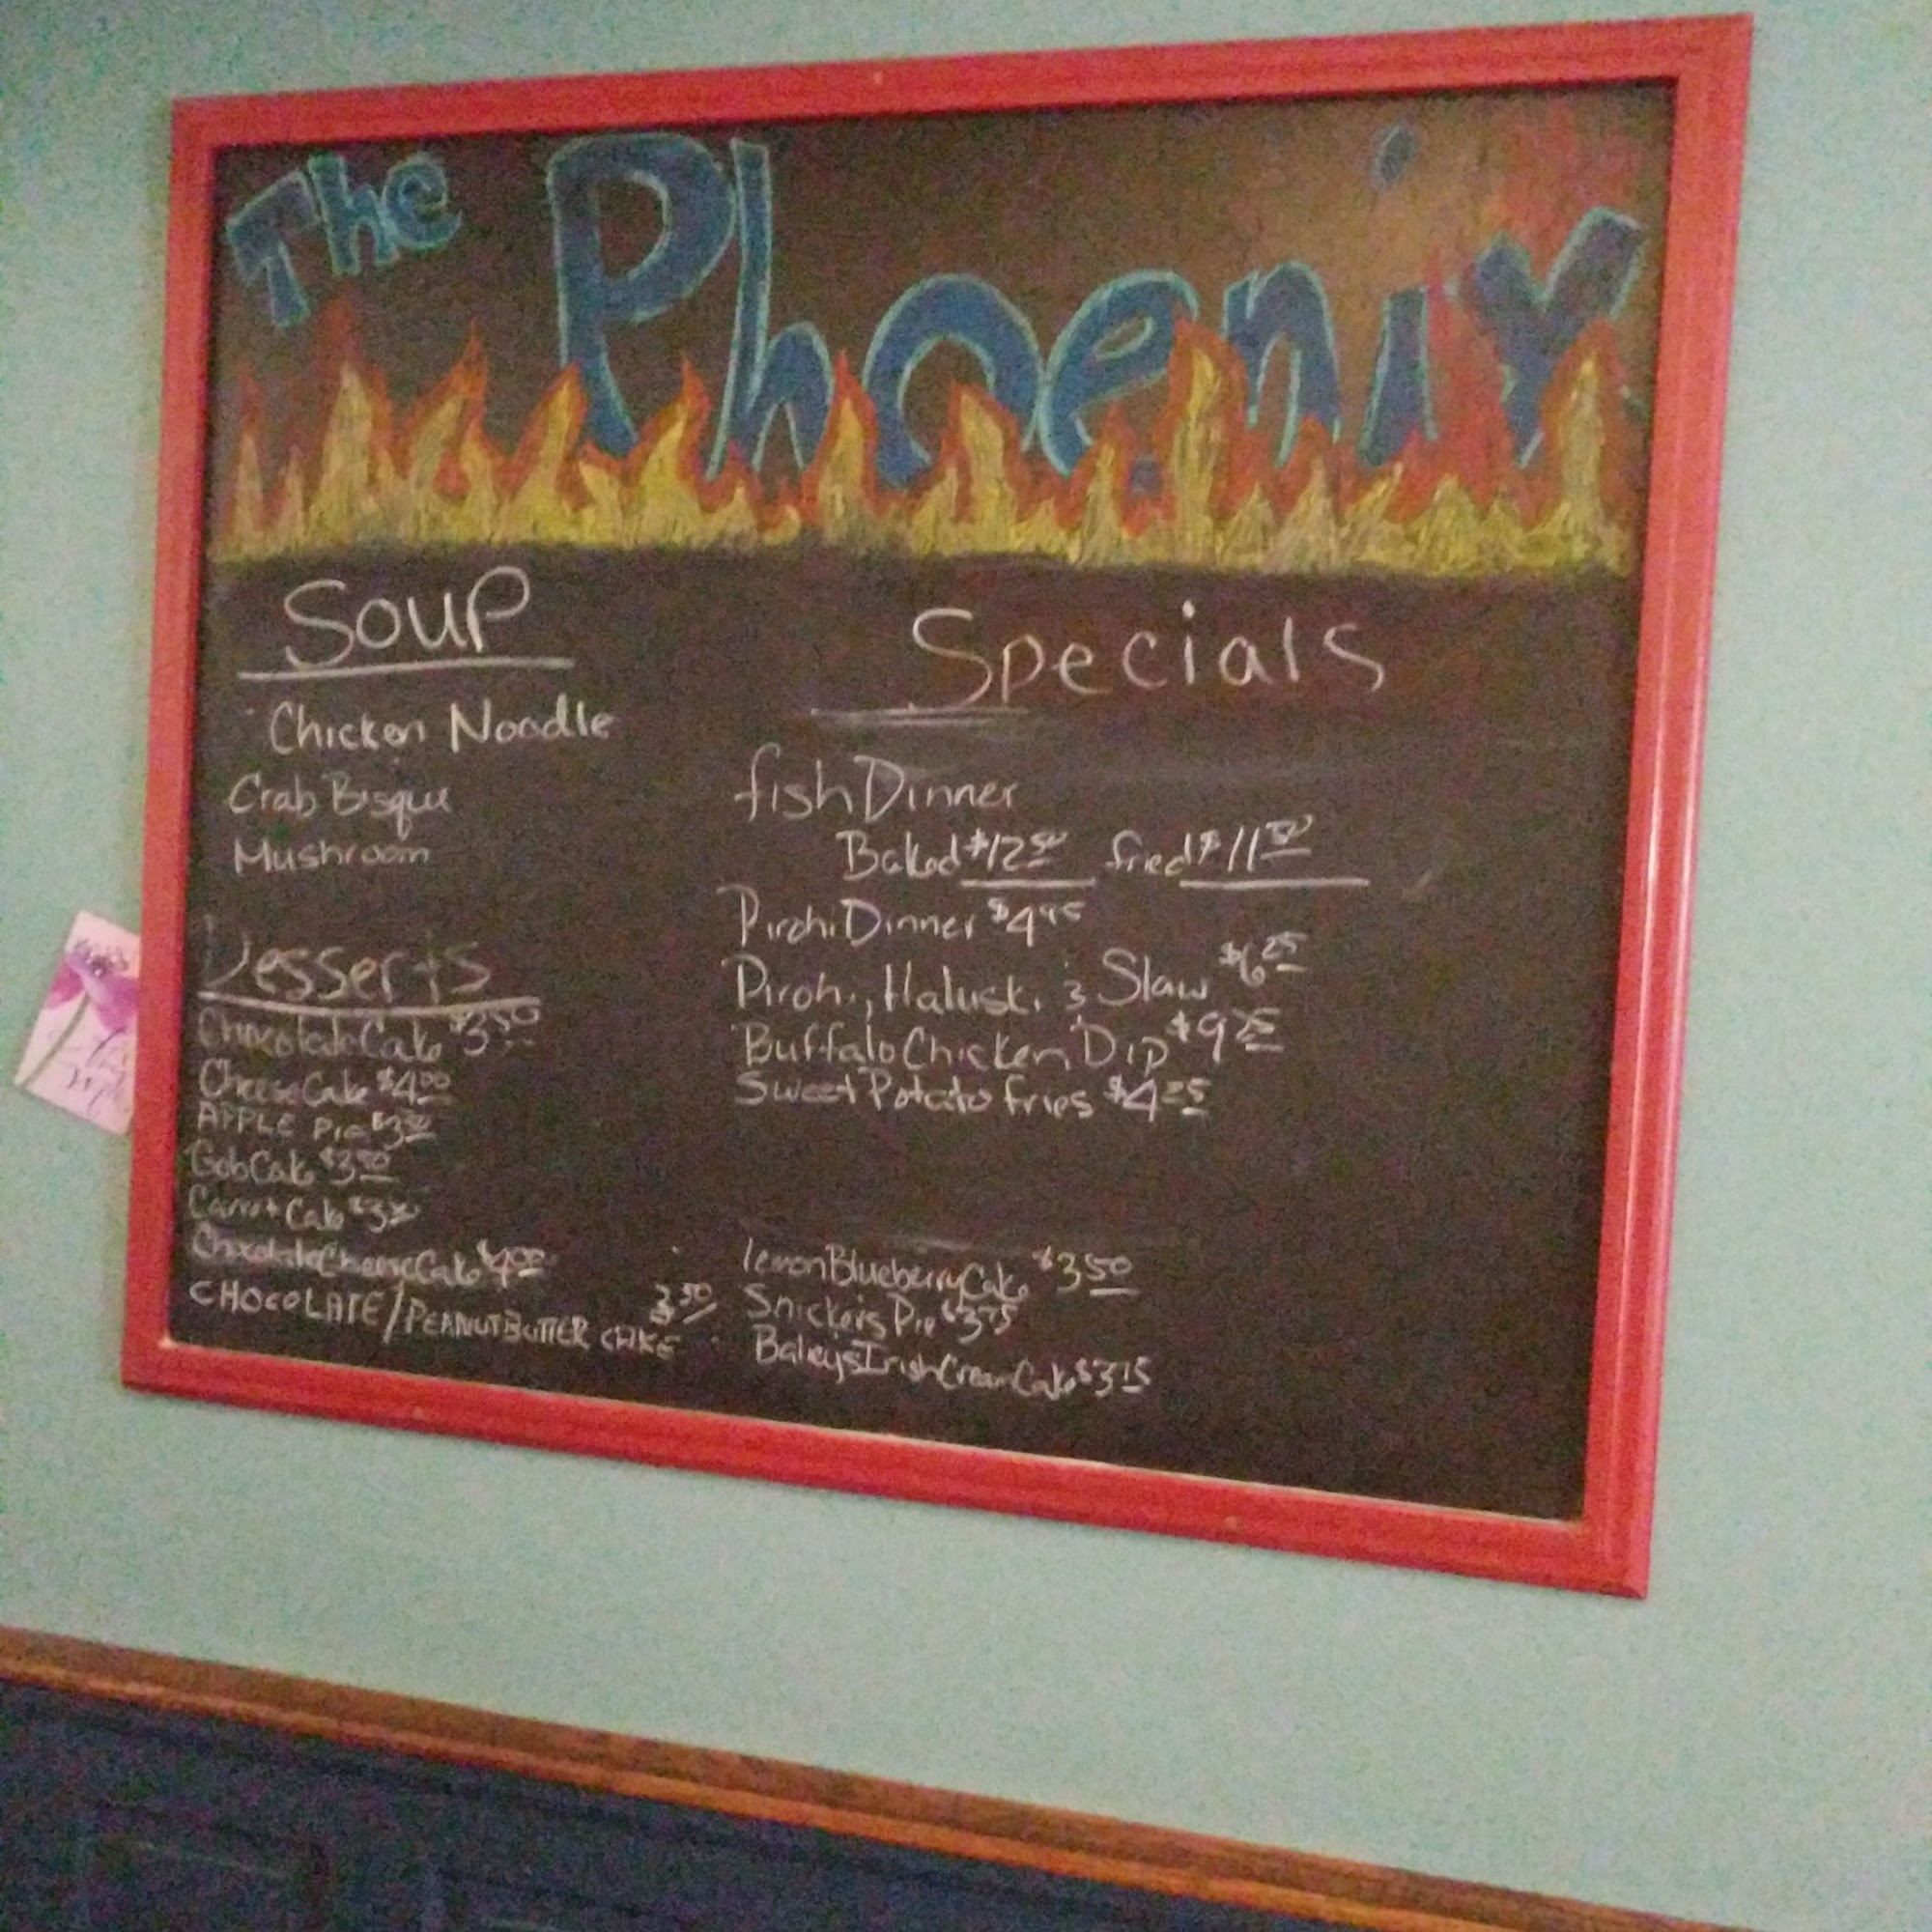 The Phoenix
Soup
Chicken Noodle
Crab Bisque
Mushroom
Desserts
Chocolate Cake $3.50
Cheese Cake $4.00
APPLE Pie $3.50
Gob Cake $3.50
Carrot Cake $3.50
Chocolate Cheese Cake $4.00
CHOCOLATE/PEANUT BUTTER CAKE 3.50
Specials
fish Dinner
Baked $12.50 fried $11.50
Pirohi Dinner $4.95
Pirohi, Haluski & Slaw $6.25
Buffalo Chicken Dip $9.25
Sweet Potato fries $4.25
lemon Blueberry Cake $3.50
Snickers Pie $3.75
Baileys Irish Cream Cake $3.75